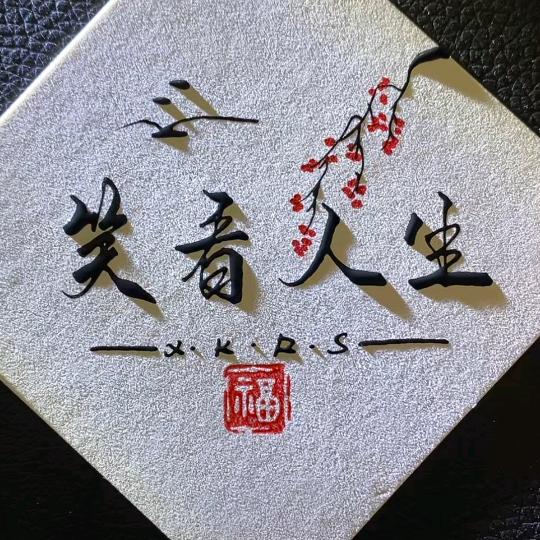 笑看人生
X·K·R·S
福